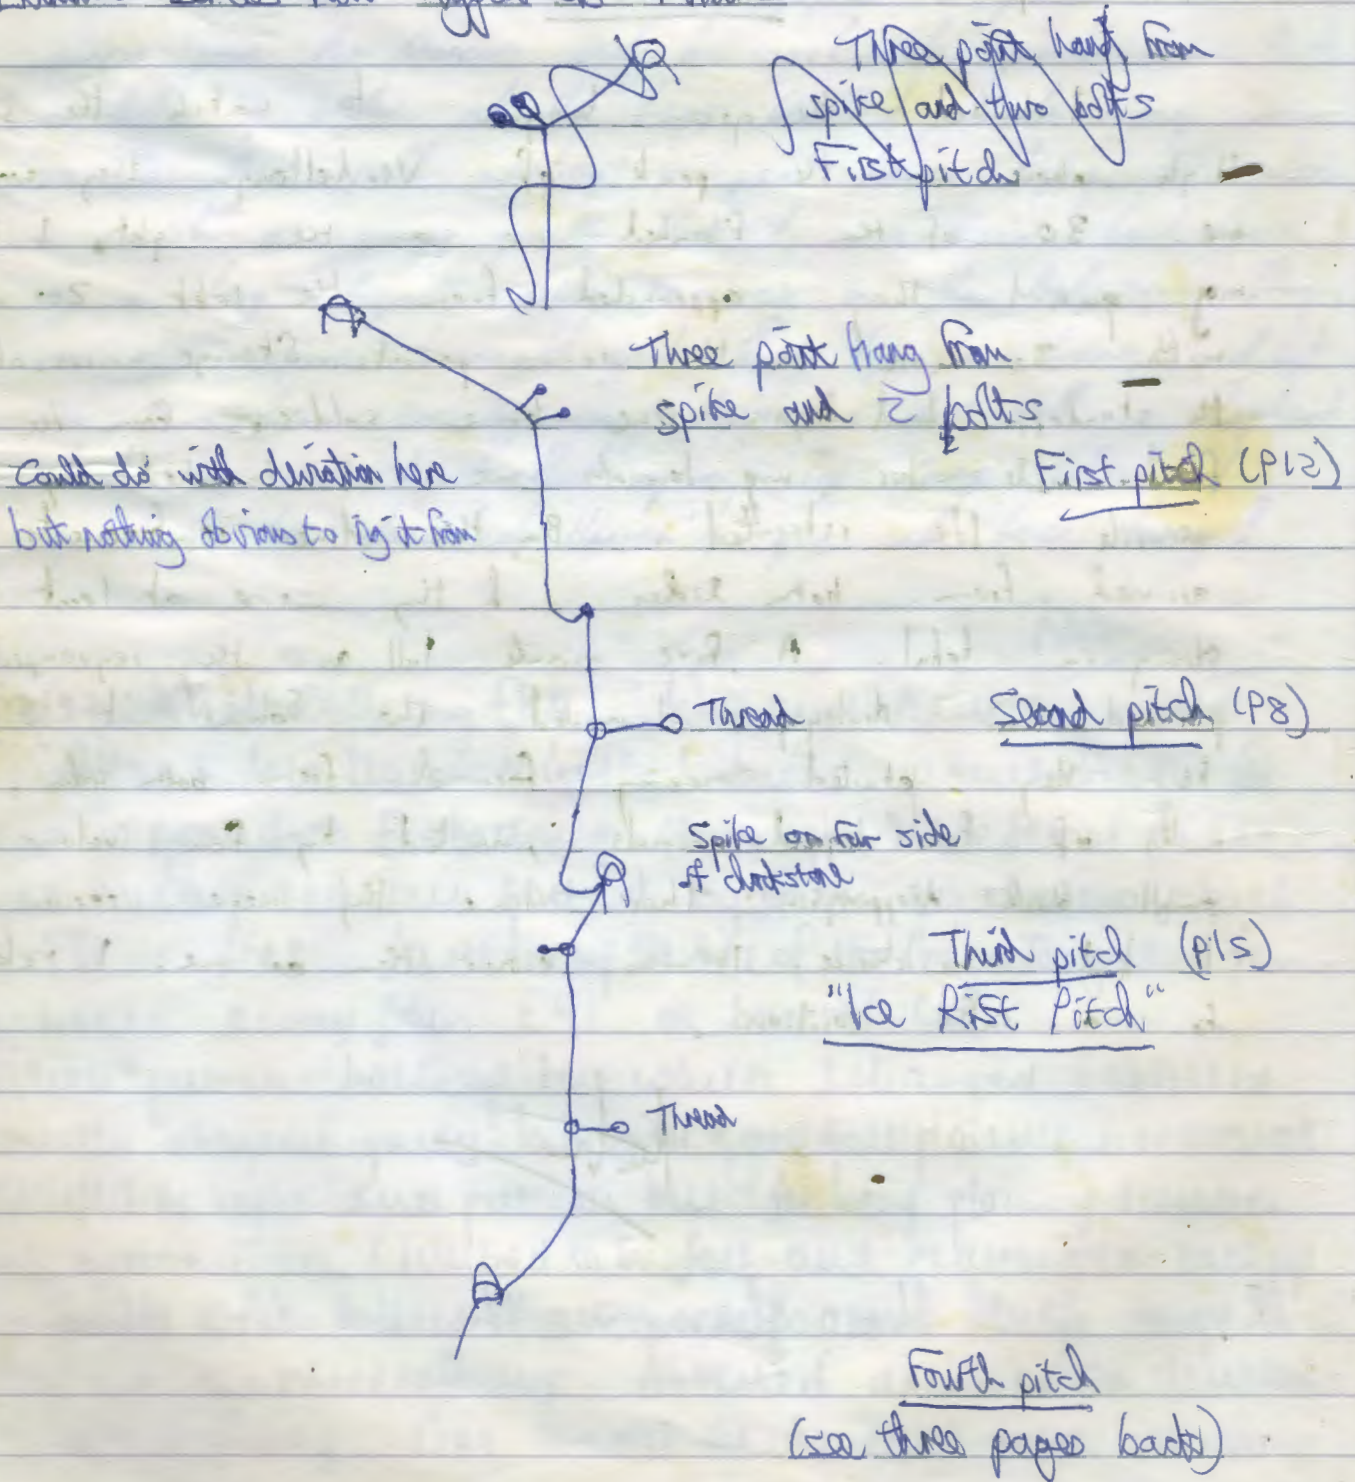 Three point hang from
spike and two bolts
First pitch
Three point hang from
spike and 2 bolts
First pitch (P12)
Could do with deviation here
but nothing obvious to rig it from
Thread
Second pitch (P8)
Spike on far side
of chockstone
Third pitch (P15)
"Ice Rist Pitch"
Thread
Fourth pitch
(see three pages back)